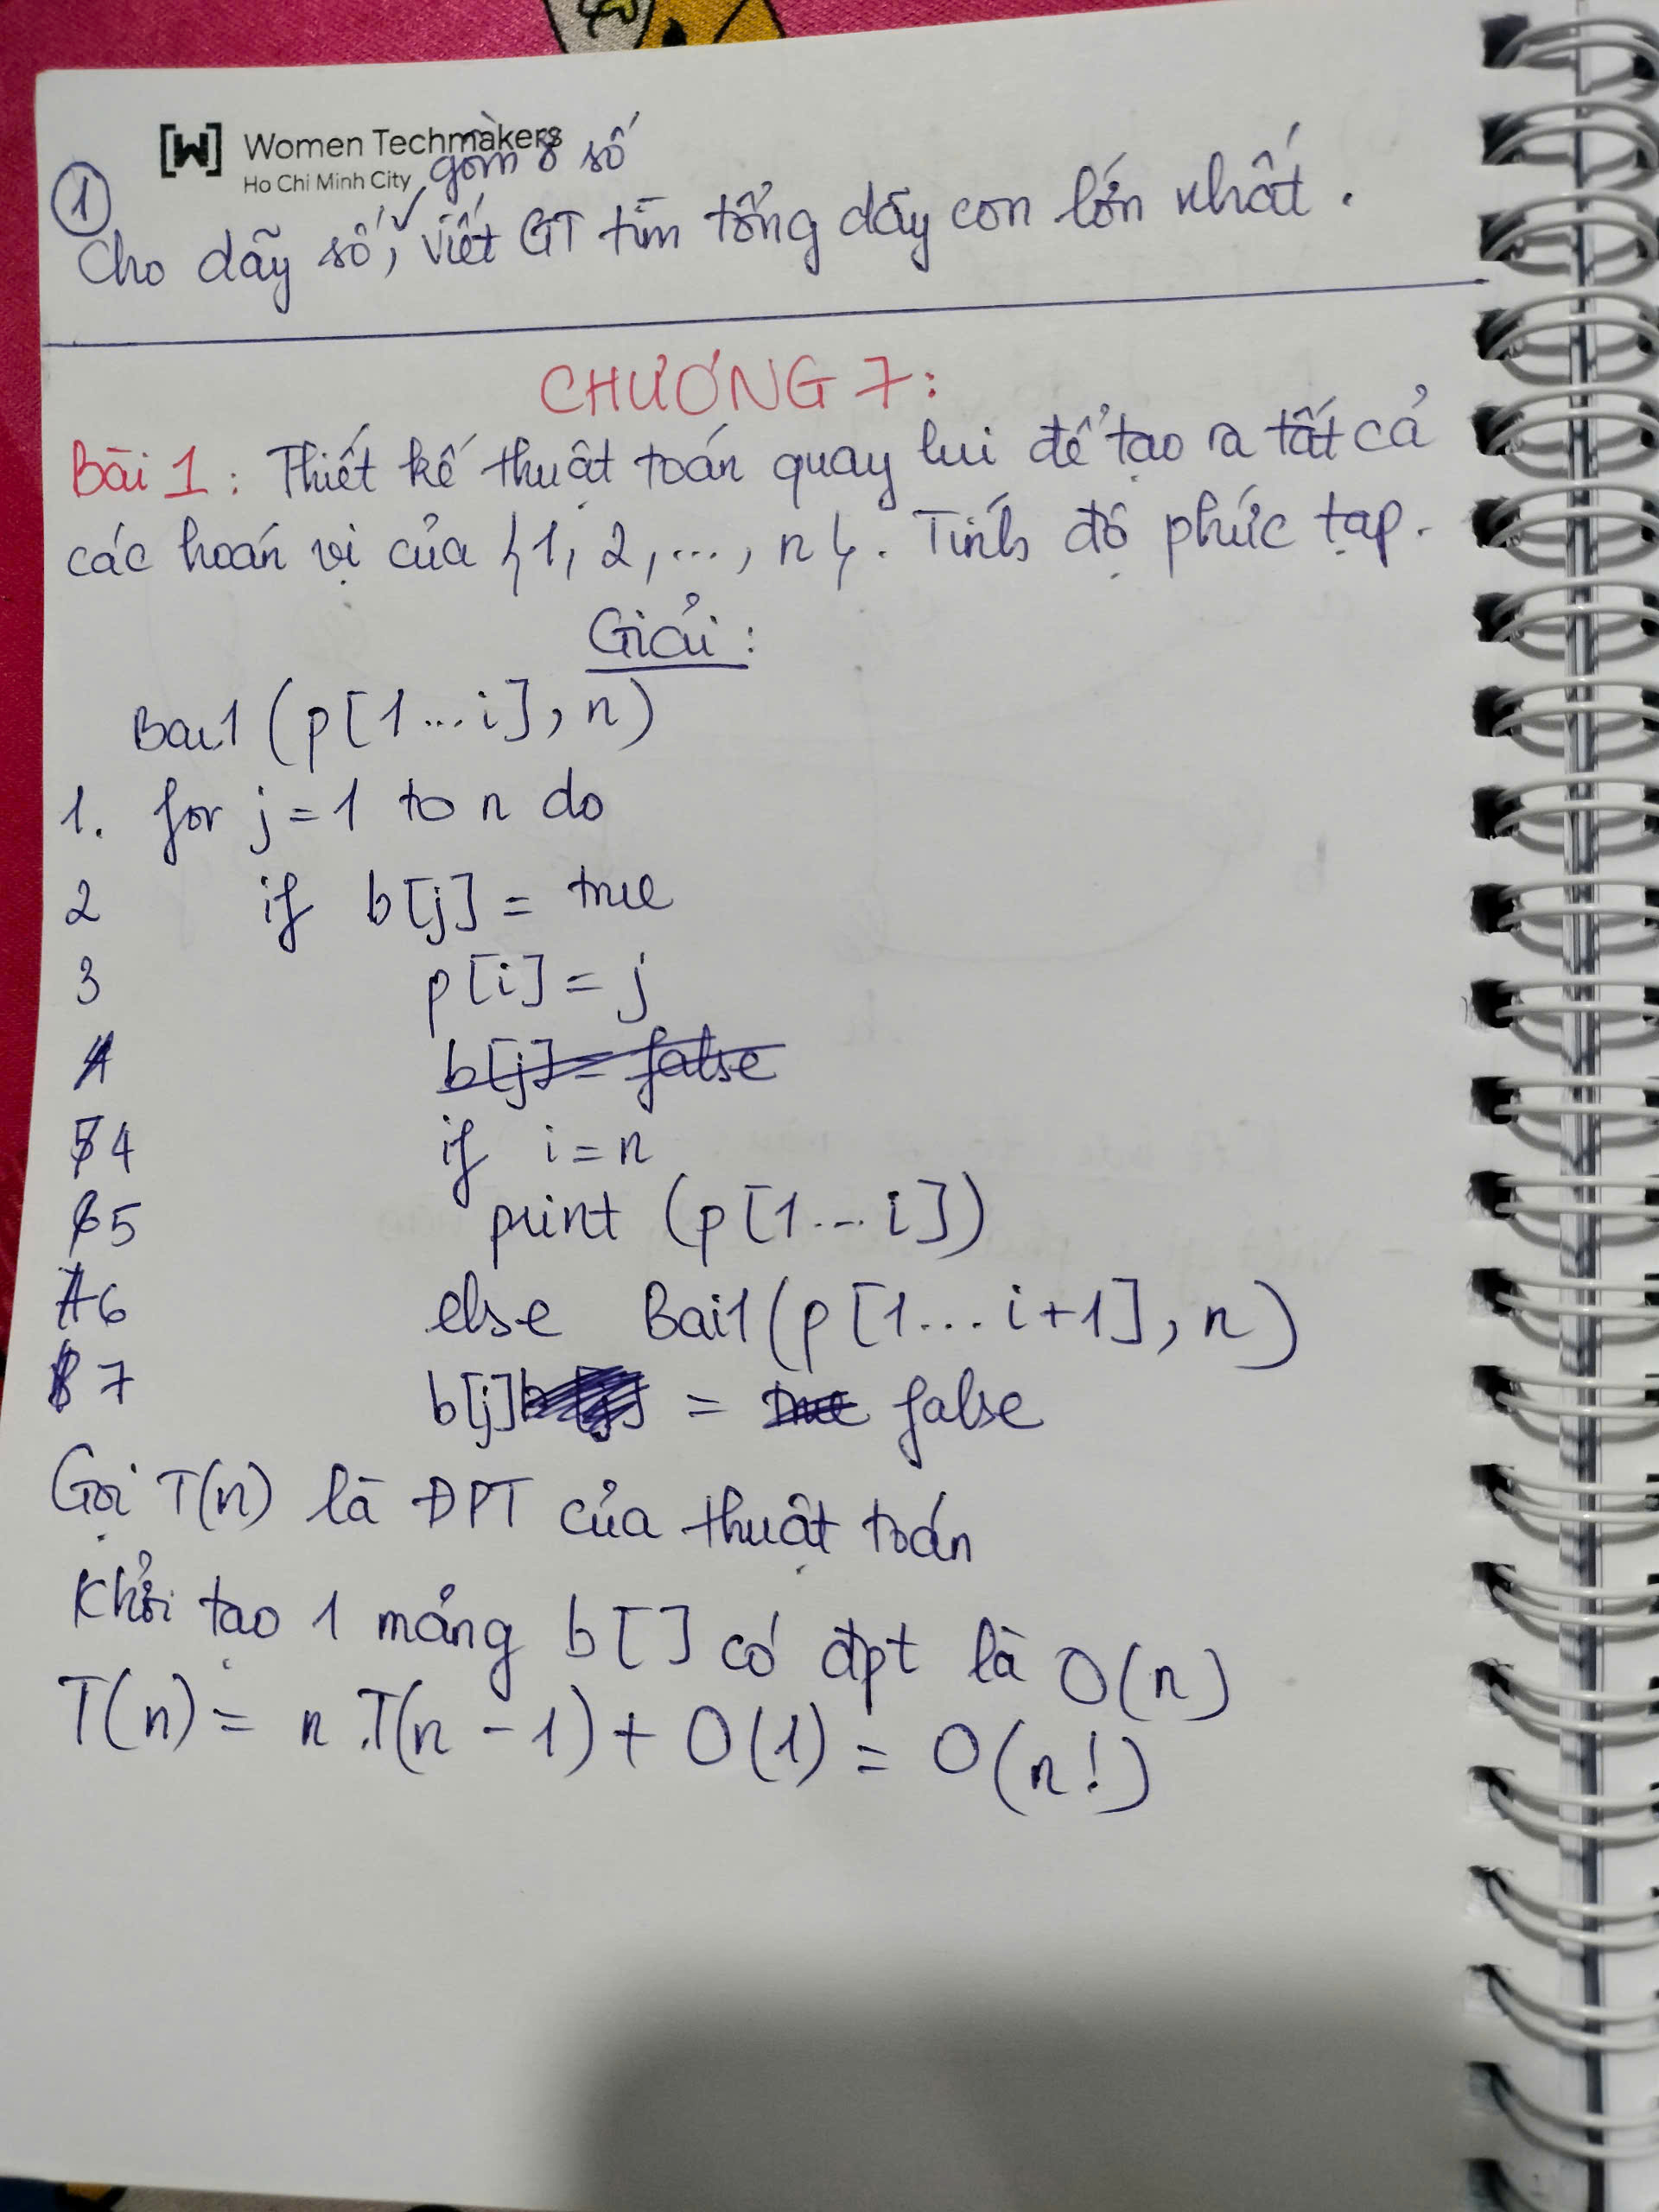 Women Techmakers
Ho Chi Minh City
gồm 8 số
1
Cho dãy số, viết GT tìm tổng dãy con lớn nhất.
CHƯƠNG 7:
Bài 1: Thiết kế thuật toán quay lui để tạo ra tất cả
các hoán vị của {1, 2, ..., n}. Tính độ phức tạp.
Giải:
Bai1 (p[1...i], n)
1. for j = 1 to n do
2 if b[j] = true
3 p[i] = j
b[j] = false
4 if i = n
5 print (p[1...i])
6 else Bai1(p[1...i+1], n)
7 b[j] = false
Gọi T(n) là ĐPT của thuật toán
Khởi tạo 1 mảng b[] có đpt là O(n)
T(n) = n.T(n-1) + O(1) = O(n!)